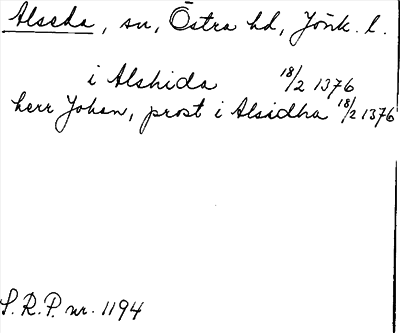 Alseda, sn, Östra hd, Jönk. l.
i Alshida 18/2 1376
herr Johan, prost i Alsidha 18/2 1376
S.R.P. nr. 1194